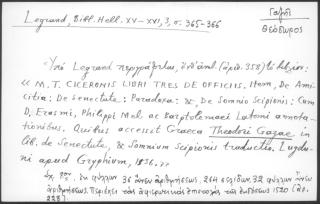 Legrand, Bibl. Hell. XV–XVI, 3, σ. 365-366
Γαζῆς
Θεόδωρος
Ὑπὸ Legrand περιγράφεται, (ἀριθ. 358)
« M. T. CICERONIS LIBRI TRES DE OFFICIIS. Item, De Ami-
citia: De Senectute: Paradoxa: &, De Somnio Scipionis: Cum
D. Erasmi, Philippi Mel. ac Bartolemaei Latomi annota-
tionibus. Quibus accessit Graeca Theodori Gazae in
lib. de Senectute, & Somnium Scipionis traductio. Lugdu-
ni apud Gryphium, 1536. »
φύλλων 36 ἄνευ ἀριθμήσεως, 264 σελίδων, 32 φύλλων ἄνευ
ἀριθμήσεως. Περιέχει τὰς ἀφιερωτικὰς ἐπιστολὰς τῆς ἐκδόσεως 1520 (ἀρ.
228).